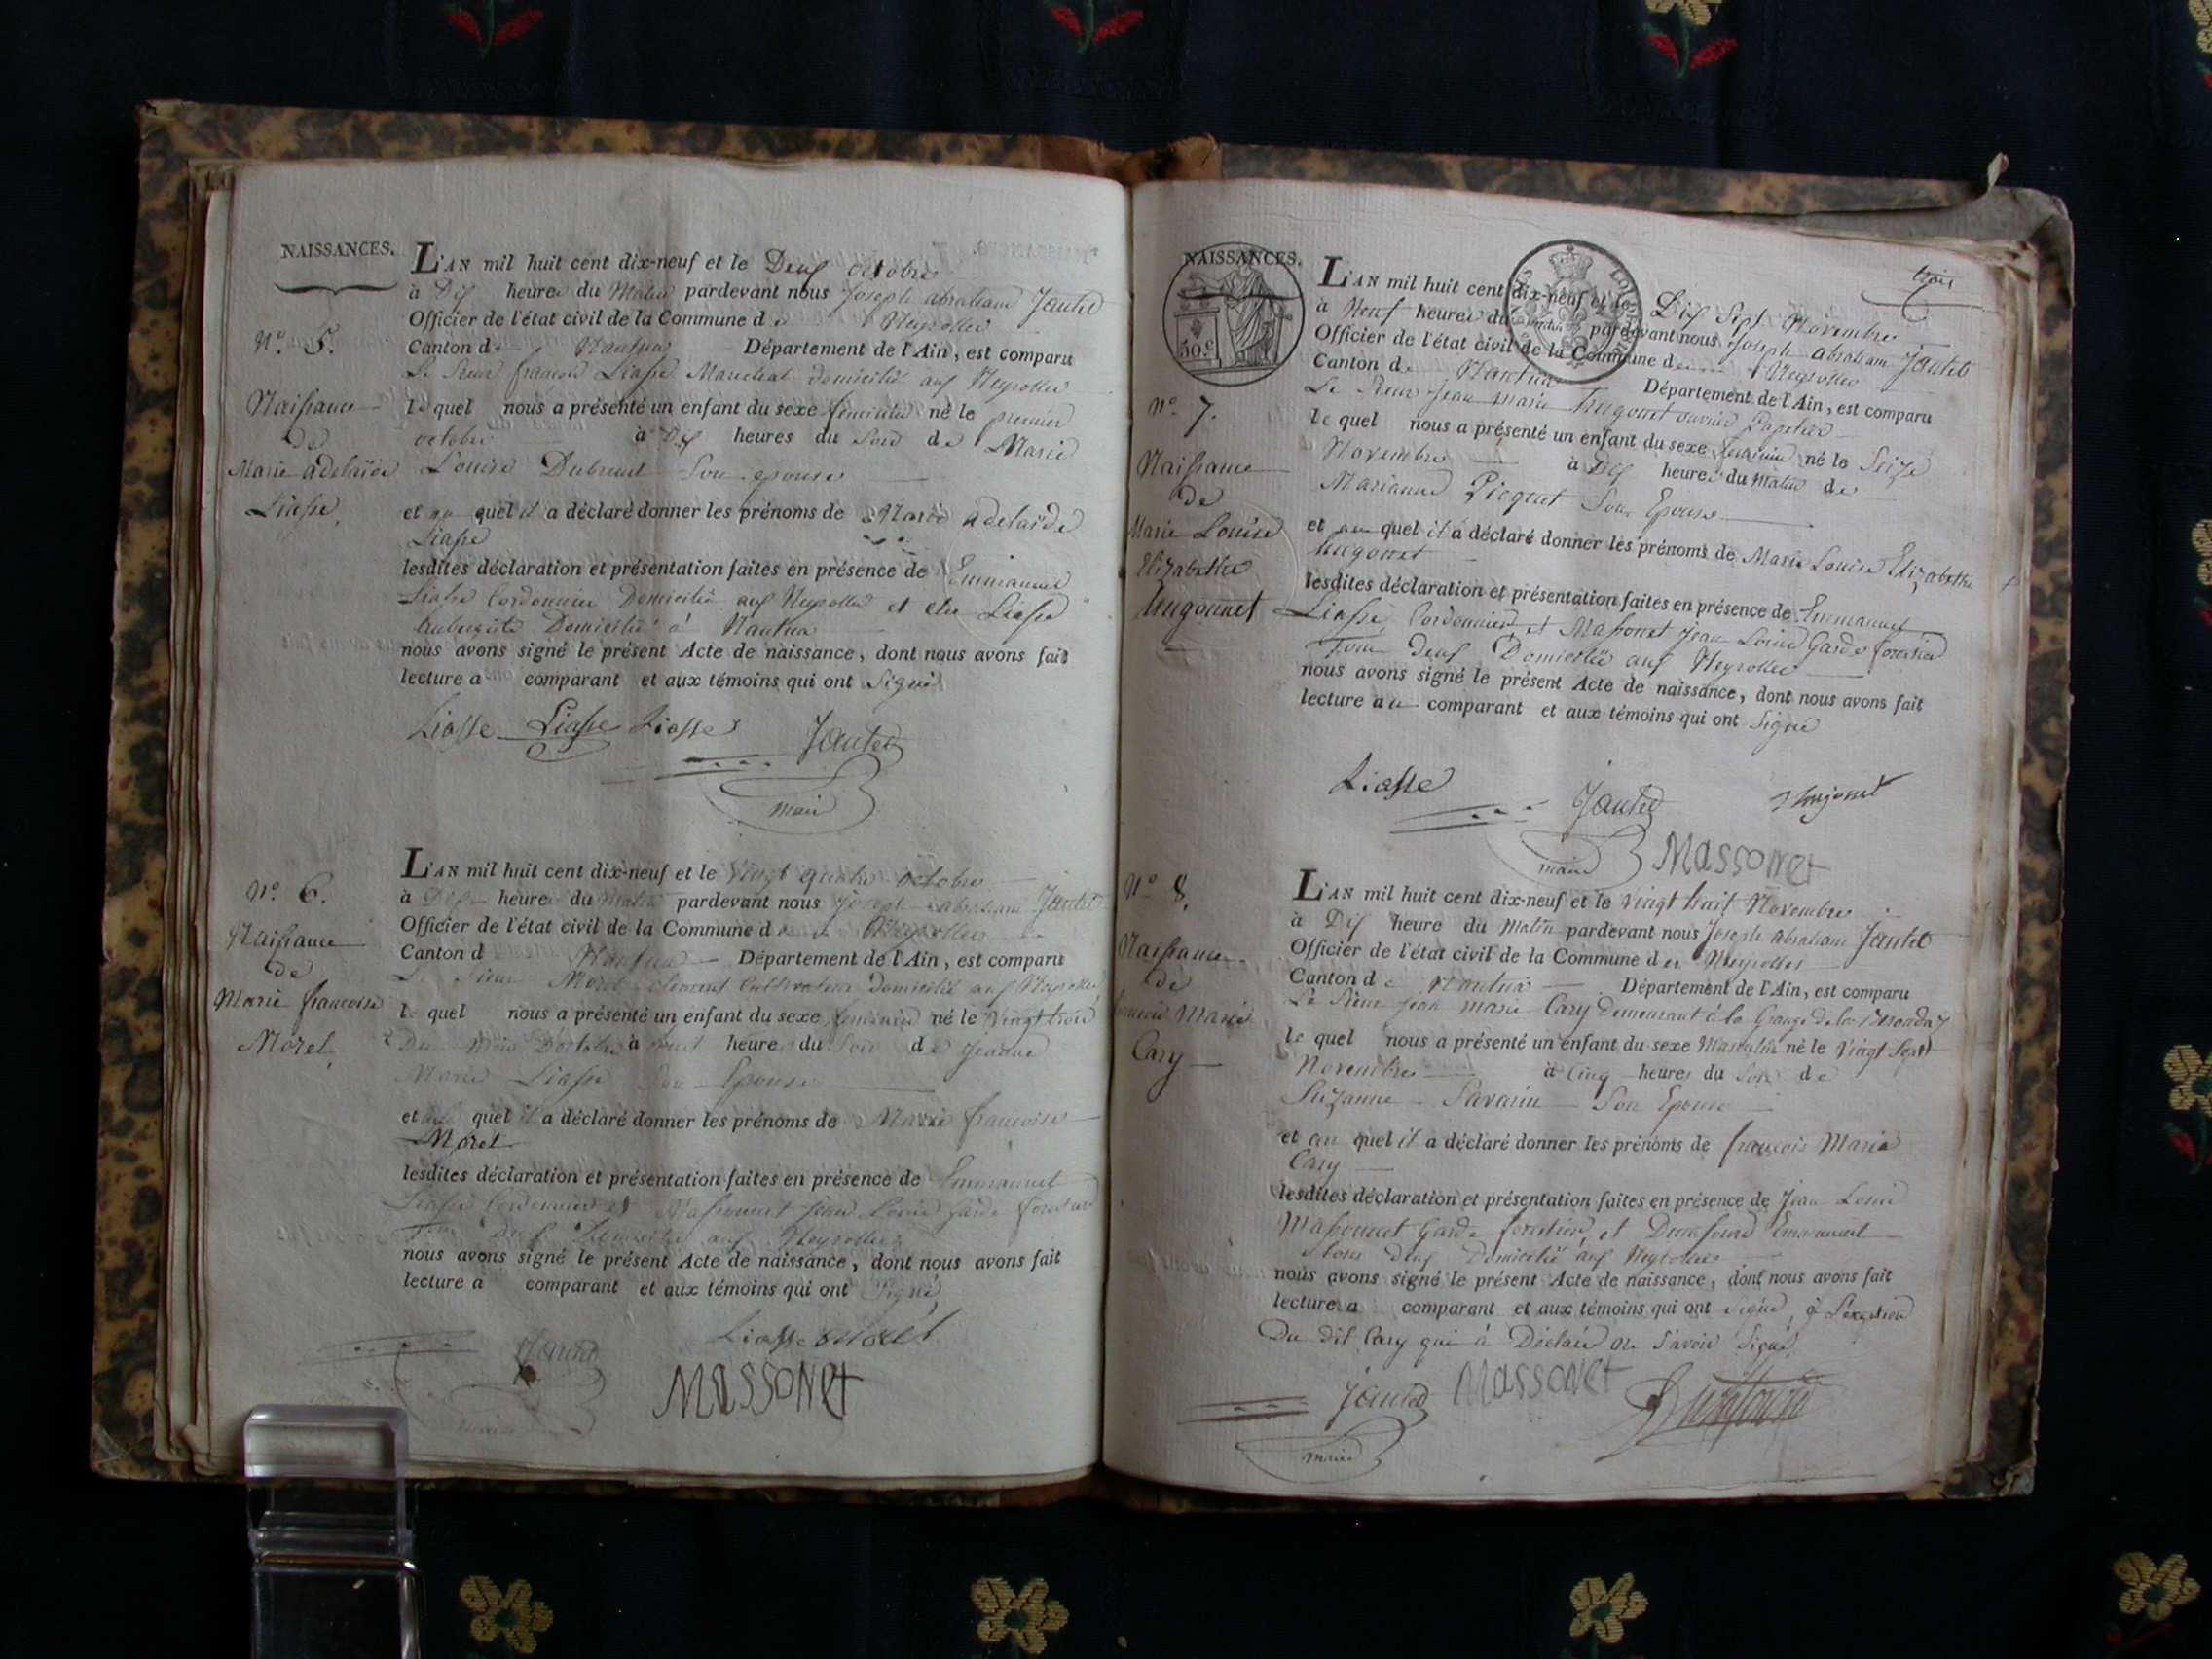 NAISSANCES.
L'AN mil huit cent dix-neuf et le Deux octobre
à Dix heures du Matin pardevant nous Joseph abraham Jantet
Officier de l'état civil de la Commune des Neyrolles
Canton de Nantua Département de l'Ain, est comparu
Le Sieur françois Liasse Marechal domicilié aux Neyrolles
N.º 5.
Naissance
de
Marie adelaïde
Liasse,
le quel nous a présenté un enfant du sexe feminin né le premier
octobre à Dix heures du Soir de Marie
Louise Dubreuil Son epouse
et au quel il a déclaré donner les prénoms de Marie adelaïde
Liasse
lesdites déclaration et présentation faites en présence de Emmanuel
Liasse Cordonnier Domicilié aux Neyrolles et Liasse
Aubergiste Domicilié à Nantua
nous avons signé le présent Acte de naissance, dont nous avons fait
lecture a comparant et aux témoins qui ont Signé
Liasse Liasse Liasse Jantet
maire
L'AN mil huit cent dix-neuf et le Vingt quatre octobre
à Dix heures du matin pardevant nous Joseph abraham Jantet
Officier de l'état civil de la Commune des Neyrolles
Canton d Nantua Département de l'Ain, est comparu
Le Sieur Morel Clement Cultivateur domicilié aux Neyrolles
N.º 6.
Naissance
de
Marie francoise
Morel.
le quel nous a présenté un enfant du sexe feminin né le Vingt trois
Du Mois D'octobre à heures du Soir de Jeanne
Marie Liasse Son Epouse
et au quel il a déclaré donner les prénoms de Marie francoise
Morel
lesdites déclaration et présentation faites en présence de Emmanuel
Liasse Cordonnier et Massonnet Jean Louis garde forestier
Tous Deux Domicilié aux Neyrolles
nous avons signé le présent Acte de naissance, dont nous avons fait
lecture a comparant et aux témoins qui ont Signé
Jantet Liasse Morel
MASSONet
maire
NAISSANCES.
50.c
trois
L'AN mil huit cent dix-neuf et le Dix Sept Novembre
à Neuf heures du pardevant nous Joseph abraham Jantet
Officier de l'état civil de la Commune des Neyrolles
Canton de Nantua Département de l'Ain, est comparu
Le Sieur Jean marie hugonet ouvrier Papetier
N.º 7.
Naissance
de
Marie Louise
Elizabethe
hugonnet
le quel nous a présenté un enfant du sexe feminin né le Seize
Novembre à Dix heures du Matin de
Marianne Picquet Son Epouse
et au quel il a déclaré donner les prénoms de Marie Louise Elizabethe
hugonet
lesdites déclaration et présentation faites en présence de Emmanuel
Liasse, Cordonnier et Massonet Jean Louis Garde forestier
Tous deux Domicilié aux Neyrolles
nous avons signé le présent Acte de naissance, dont nous avons fait
lecture au comparant et aux témoins qui ont Signé
Liasse Jantet
maire MASSONet
L'AN mil huit cent dix-neuf et le Vingt huit Novembre
à Dix heure du Matin pardevant nous Joseph abraham Jantet
Officier de l'état civil de la Commune des Neyrolles
Canton de Nantua Département de l'Ain, est comparu
Le Sieur Jean marie Cary demeurant à la Grange de la
N.º 8.
Naissance
de
francois Marie
Cary
le quel nous a présenté un enfant du sexe Masculin né le Vingt Sept
Novembre à Cinq heures du Soir de
Suzanne Savarin Son Epouse
et au quel il a déclaré donner les prénoms de françois Marie
Cary
lesdites déclaration et présentation faites en présence de Jean Louis
Massonnet Garde forestier, et Emanuel
tous deux Domicilié aux Neyrolles
nous avons signé le présent Acte de naissance, dont nous avons fait
lecture a comparant et aux témoins qui ont signé, à L'exeption
Du dit Cary qui à Déclaré ne Savoir Signé
Jantet MASSONet
maire